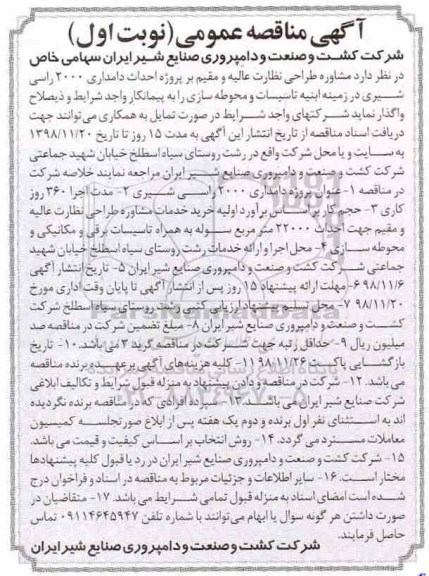 آگهی مناقصه عمومی (نوبت اول)
شرکت کشت و صنعت و دامپروری صنایع شیر ایران سهامی خاص
در نظر دارد مشاوره طراحی نظارت عالیه و مقیم بر پروژه احداث دامداری ۲۰۰۰ راسی
شیری در زمینه ابنیه تاسیسات و محوطه سازی را به پیمانکار واجد شرایط و ذیصلاح
واگذار نماید شرکتهای واجد شرایط در صورت تمایل به همکاری می‌توانند جهت
دریافت اسناد مناقصه از تاریخ انتشار این آگهی به مدت ۱۵ روز تا تاریخ ۱۳۹۸/۱۱/۲۰
به سایت و یا محل شرکت واقع در رشت روستای سیاه اسطلخ خیابان شهید جماعتی
شرکت کشت و صنعت و دامپروری صنایع شیر ایران مراجعه نمایند خلاصه شرکت
در مناقصه ۱- عنوان پروژه دامداری ۲۰۰۰ راسی شیری ۲- مدت اجرا ۳۶۰ روز
کاری ۳- حجم کار بر اساس برآورد اولیه خرید خدمات مشاوره طراحی نظارت عالیه
و مقیم جهت احداث ۲۲۰۰۰ متر مربع سوله به همراه تاسیسات برقی و مکانیکی و
محوطه سازی ۴- محل اجرا و ارائه خدمات رشت روستای سیاه اسطلخ خیابان شهید
جماعتی شرکت کشت و صنعت و دامپروری صنایع شیر ایران ۵- تاریخ انتشار آگهی
۹۸/۱۱/۶ ۶- مهلت ارائه پیشنهاد ۱۵ روز پس از انتشار آگهی تا پایان وقت اداری مورخ
۹۸/۱۱/۲۰ ۷- محل تسلیم اسناد ارزیابی کیفی رشت روستای سیاه اسطلخ شرکت
کشت و صنعت و دامپروری صنایع شیر ایران ۸- مبلغ تضمین شرکت در مناقصه صد
میلیون ریال ۹- حداقل رتبه جهت شرکت در مناقصه گرید ۳ می باشد. ۱۰- تاریخ
بازگشایی پاکت ۹۸/۱۱/۲۶ ۱۱- کلیه هزینه های آگهی برعهده برنده مناقصه
می باشد. ۱۲- شرکت در مناقصه و دادن پیشنهاد به منزله قبول شرایط و تکالیف ابلاغی
شرکت صنایع شیر ایران می باشد. ۱۳- سپرده افرادی که در مناقصه برنده نگردیده
اند به استثنای نفر اول برنده و دوم یک هفته پس از ابلاغ صورتجلسه کمیسیون
معاملات مسترد می گردد. ۱۴- روش انتخاب بر اساس کیفیت و قیمت می باشد.
۱۵- شرکت کشت و صنعت و دامپروری صنایع شیر ایران در رد یا قبول کلیه پیشنهادها
مختار است. ۱۶- سایر اطلاعات و جزئیات مربوط به مناقصه در اسناد و فراخوان درج
شده است امضای اسناد به منزله قبول تمامی شرایط می باشد. ۱۷- متقاضیان در
صورت داشتن هر گونه سوال یا ابهام می‌توانند با شماره تلفن ۰۹۱۱۴۶۴۵۹۴۷ تماس
حاصل فرمایند.
شرکت کشت و صنعت و دامپروری صنایع شیر ایران